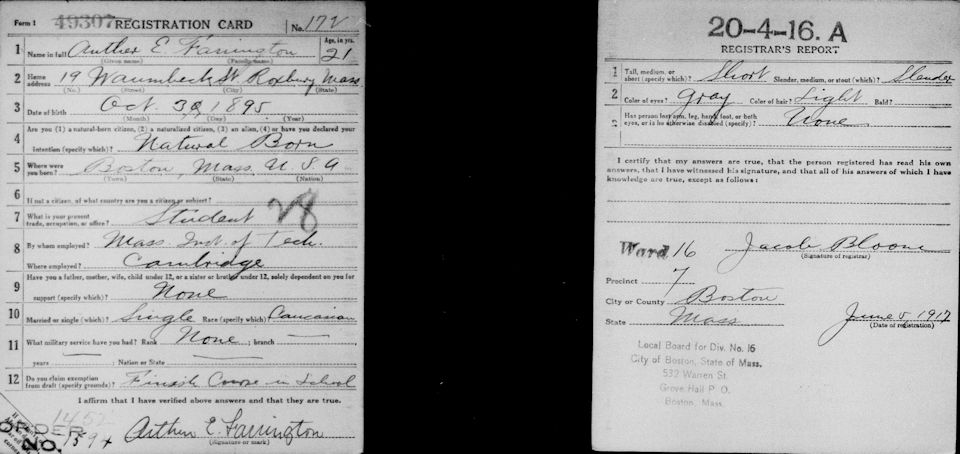 Form 1 49307 REGISTRATION CARD No. 172
1 Name in full Arther E. Farrington Age, in yrs. 21
(Given name) (Family name)
2 Home address 19 Waumbeck St Roxbury Mass
(No.) (Street) (City) (State)
3 Date of birth Oct. 30 1895
(Month) (Day) (Year)
4 Are you (1) a natural-born citizen, (2) a naturalized citizen, (3) an alien, (4) or have you declared your
intention (specify which)? Natural Born
5 Where were you born? Boston, Mass. U S A
(Town) (State) (Nation)
6 If not a citizen, of what country are you a citizen or subject?
7 What is your present trade, occupation, or office? Student 28
8 By whom employed? Mass. Inst. of Tech.
Where employed? Cambridge
9 Have you a father, mother, wife, child under 12, or a sister or brother under 12, solely dependent on you for
support (specify which)? None
10 Married or single (which)? Single Race (specify which)? Caucasian
11 What military service have you had? Rank None ; branch
years ; Nation or State
12 Do you claim exemption from draft (specify grounds)? Finish Course in School
I affirm that I have verified above answers and that they are true.
1452
ORDER NO. 159+
Arthur E. Farrington
(Signature or mark)
20-4-16. A
REGISTRAR'S REPORT
1 Tall, medium, or short (specify which)? Short Slender, medium, or stout (which)? Slender
2 Color of eyes? Gray Color of hair? Light Bald?
3 Has person lost arm, leg, hand, foot, or both
eyes, or is he otherwise disabled (specify)? None
I certify that my answers are true, that the person registered has read his own
answers, that I have witnessed his signature, and that all of his answers of which I have
knowledge are true, except as follows:
Ward 16 Jacob Bloone
(Signature of registrar)
Precinct 7
City or County Boston
State Mass June 5, 1917
(Date of registration)
Local Board for Div. No. 16
City of Boston, State of Mass.
532 Warren St.
Grove Hall P. O.
Boston, Mass.